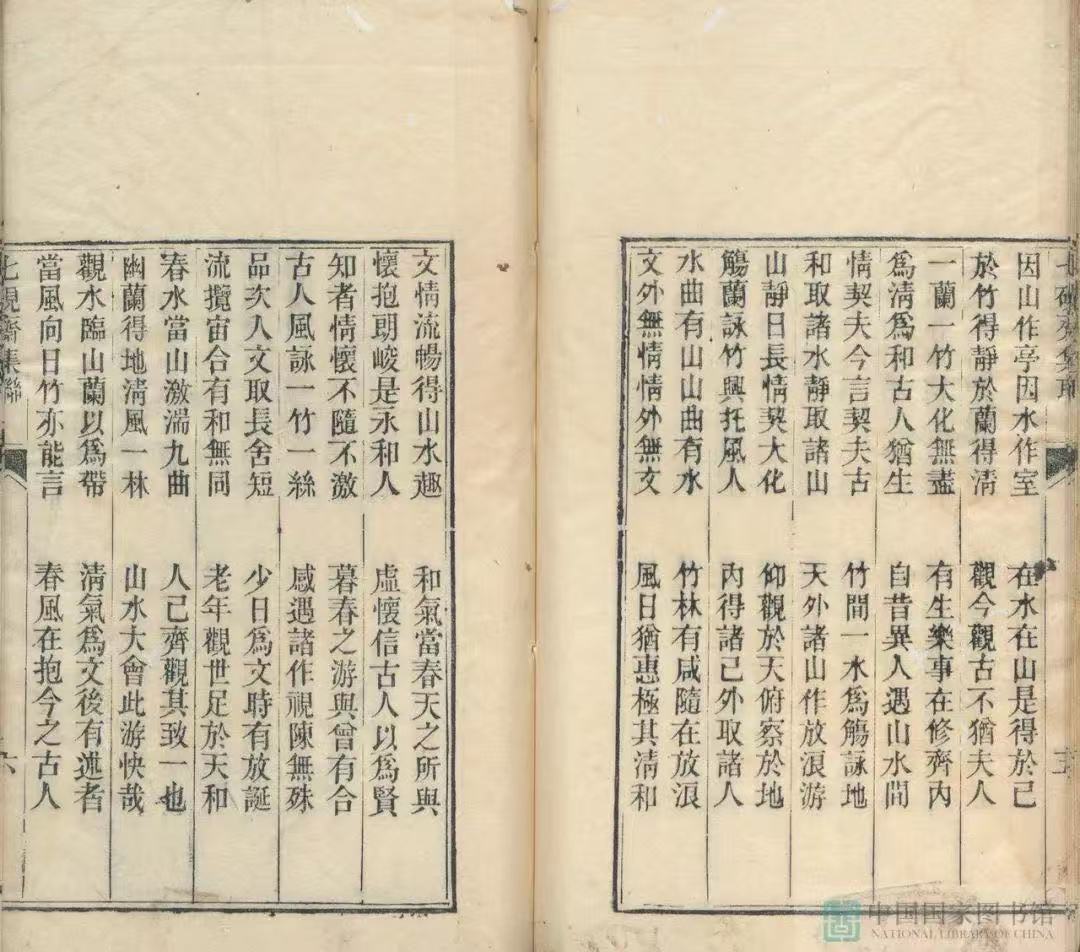 因山作亭因水作室
在水在山是得於己
於竹得靜於蘭得淸
觀今觀古不猶夫人
一蘭一竹大化無盡
有生樂事在修齊內
爲淸爲和古人猶生
自昔異人遇山水間
情契夫今言契夫古
竹間一水爲觴詠地
和取諸水靜取諸山
天外諸山作放浪游
山靜日長情契大化
仰觀於天俯察於地
觴蘭詠竹興托風人
內得諸己外取諸人
水曲有山山曲有水
竹林有咸隨在放浪
文外無情情外無文
風日猶惠極其淸和
文情流暢得山水趣
和氣當春天之所與
懷抱朗峻是永和人
虛懷信古人以爲賢
知者情懷不隨不激
暮春之游與曾有合
古人風詠一竹一絲
感遇諸作視陳無殊
品次人文取長舍短
少日爲文時有放誕
流攬宙合有和無同
老年觀世足於天和
春水當山激湍九曲
人己齊觀其致一也
幽蘭得地淸風一林
山水大會此游快哉
觀水臨山蘭以爲帶
淸氣爲文後有述者
當風向日竹亦能言
春風在抱今之古人
集聯
六
中国国家图书馆
NATIONAL LIBRARY OF CHINA